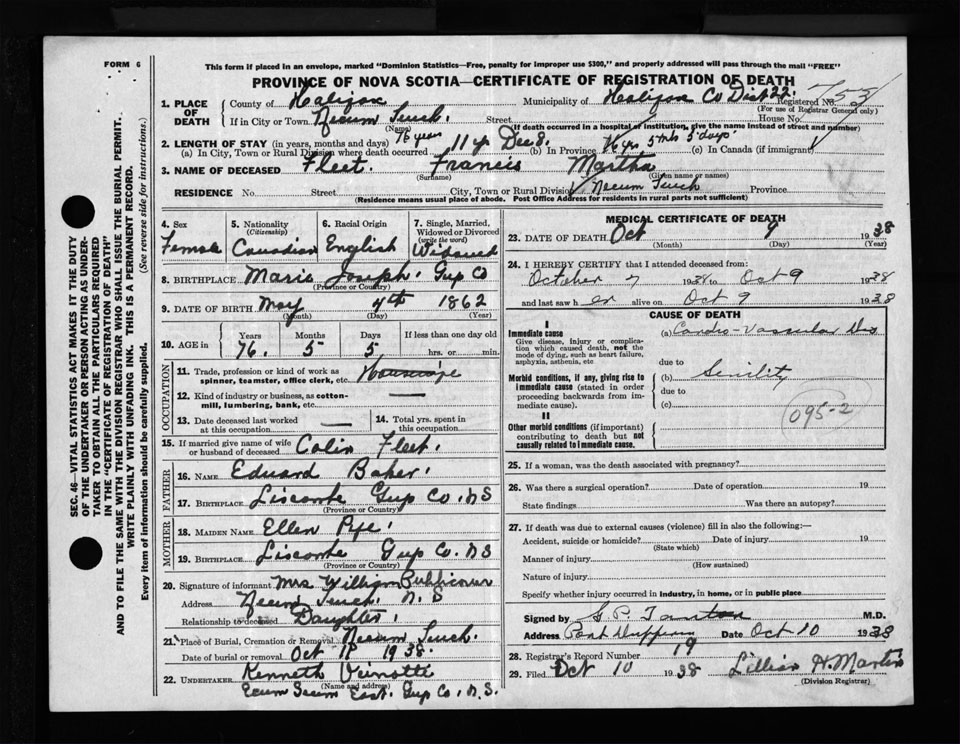 FORM 6
This form if placed in an envelope, marked "Dominion Statistics—Free, penalty for improper use $300," and properly addressed will pass through the mail "FREE"
PROVINCE OF NOVA SCOTIA—CERTIFICATE OF REGISTRATION OF DEATH
1. PLACE OF DEATH
County of Halifax Municipality of Halifax Co Dist 22. Registered No.
(For use of Registrar General only)
If in City or Town Necum Teuch. Street House No.
(Name) (If death occurred in a hospital or institution, give the name instead of street and number)
2. LENGTH OF STAY (in years, months and days) 76 years
(a) In City, Town or Rural Division where death occurred 11 y (b) In Province 76 yrs 5 mts 5 days (c) In Canada (if immigrant)
3. NAME OF DECEASED Fleet. Francis Martha
(Surname) (Given name or names)
RESIDENCE No. Street City, Town or Rural Division Necum Teuch Province
(Residence means usual place of abode. Post Office Address for residents in rural parts not sufficient)
4. Sex
Female
5. Nationality
(Citizenship)
Canadian
6. Racial Origin
English
7. Single, Married, Widowed or Divorced
(write the word)
Widowed
8. BIRTHPLACE Marie Joseph. Guy Co
(Province or Country)
9. DATE OF BIRTH May 4th 1862
(Month) (Day) (Year)
10. AGE in
Years Months Days If less than one day old
76. 5 5 hrs. or min.
OCCUPATION
11. Trade, profession or kind of work as spinner, teamster, office clerk, etc. Housewife
12. Kind of industry or business, as cotton-mill, lumbering, bank, etc. —
13. Date deceased last worked at this occupation —
14. Total yrs. spent in this occupation
15. If married give name of wife or husband of deceased Colin Fleet.
FATHER
16. NAME Edward Baker.
17. BIRTHPLACE Liscombe Guy Co. NS
(Province or Country)
MOTHER
18. MAIDEN NAME Ellen Pye.
19. BIRTHPLACE Liscombe Guy Co. NS
(Province or Country)
20. Signature of informant Mrs William Publicover
Address Necum Teuch. N.S
Relationship to deceased Daughter.
21. Place of Burial, Cremation or Removal Necum Teuch.
Date of burial or removal Oct 1938.
22. UNDERTAKER Kenneth Veinotte
(Name and address)
Ecum Secum East. Guy Co. N.S.
MEDICAL CERTIFICATE OF DEATH
23. DATE OF DEATH Oct 9 1938
(Month) (Day) (Year)
24. I HEREBY CERTIFY that I attended deceased from:
October 7 1938 to Oct 9 1938
and last saw her alive on Oct 9 1938
CAUSE OF DEATH
I
Immediate cause
Give disease, injury or complication which caused death, not the mode of dying, such as heart failure, asphyxia, asthenia, etc
(a) Cardio-Vascular Dis
due to
Morbid conditions, if any, giving rise to immediate cause (stated in order proceeding backwards from immediate cause).
(b) Senility
due to
(c)
095-2
II
Other morbid conditions (if important) contributing to death but not causally related to immediate cause.
25. If a woman, was the death associated with pregnancy?
26. Was there a surgical operation? Date of operation 19
State findings Was there an autopsy?
27. If death was due to external causes (violence) fill in also the following:—
Accident, suicide or homicide? Date of injury 19
(State which)
Manner of injury
(How sustained)
Nature of injury
Specify whether injury occurred in industry, in home, or in public place
Signed by M.D.
Address Port Dufferin Date Oct 10 1938
28. Registrar's Record Number 19
29. Filed Oct 10 1938 Lillian H. Martin
(Division Registrar)
SEC. 46—VITAL STATISTICS ACT MAKES IT THE DUTY
OF THE UNDERTAKER OR PERSON ACTING AS UNDERTAKER TO OBTAIN ALL THE PARTICULARS REQUIRED
IN THE "CERTIFICATE OF REGISTRATION OF DEATH"
AND TO FILE THE SAME WITH THE DIVISION REGISTRAR WHO SHALL ISSUE THE BURIAL PERMIT.
WRITE PLAINLY WITH UNFADING INK. THIS IS A PERMANENT RECORD.
Every item of information should be carefully supplied. (See reverse side for instructions.)